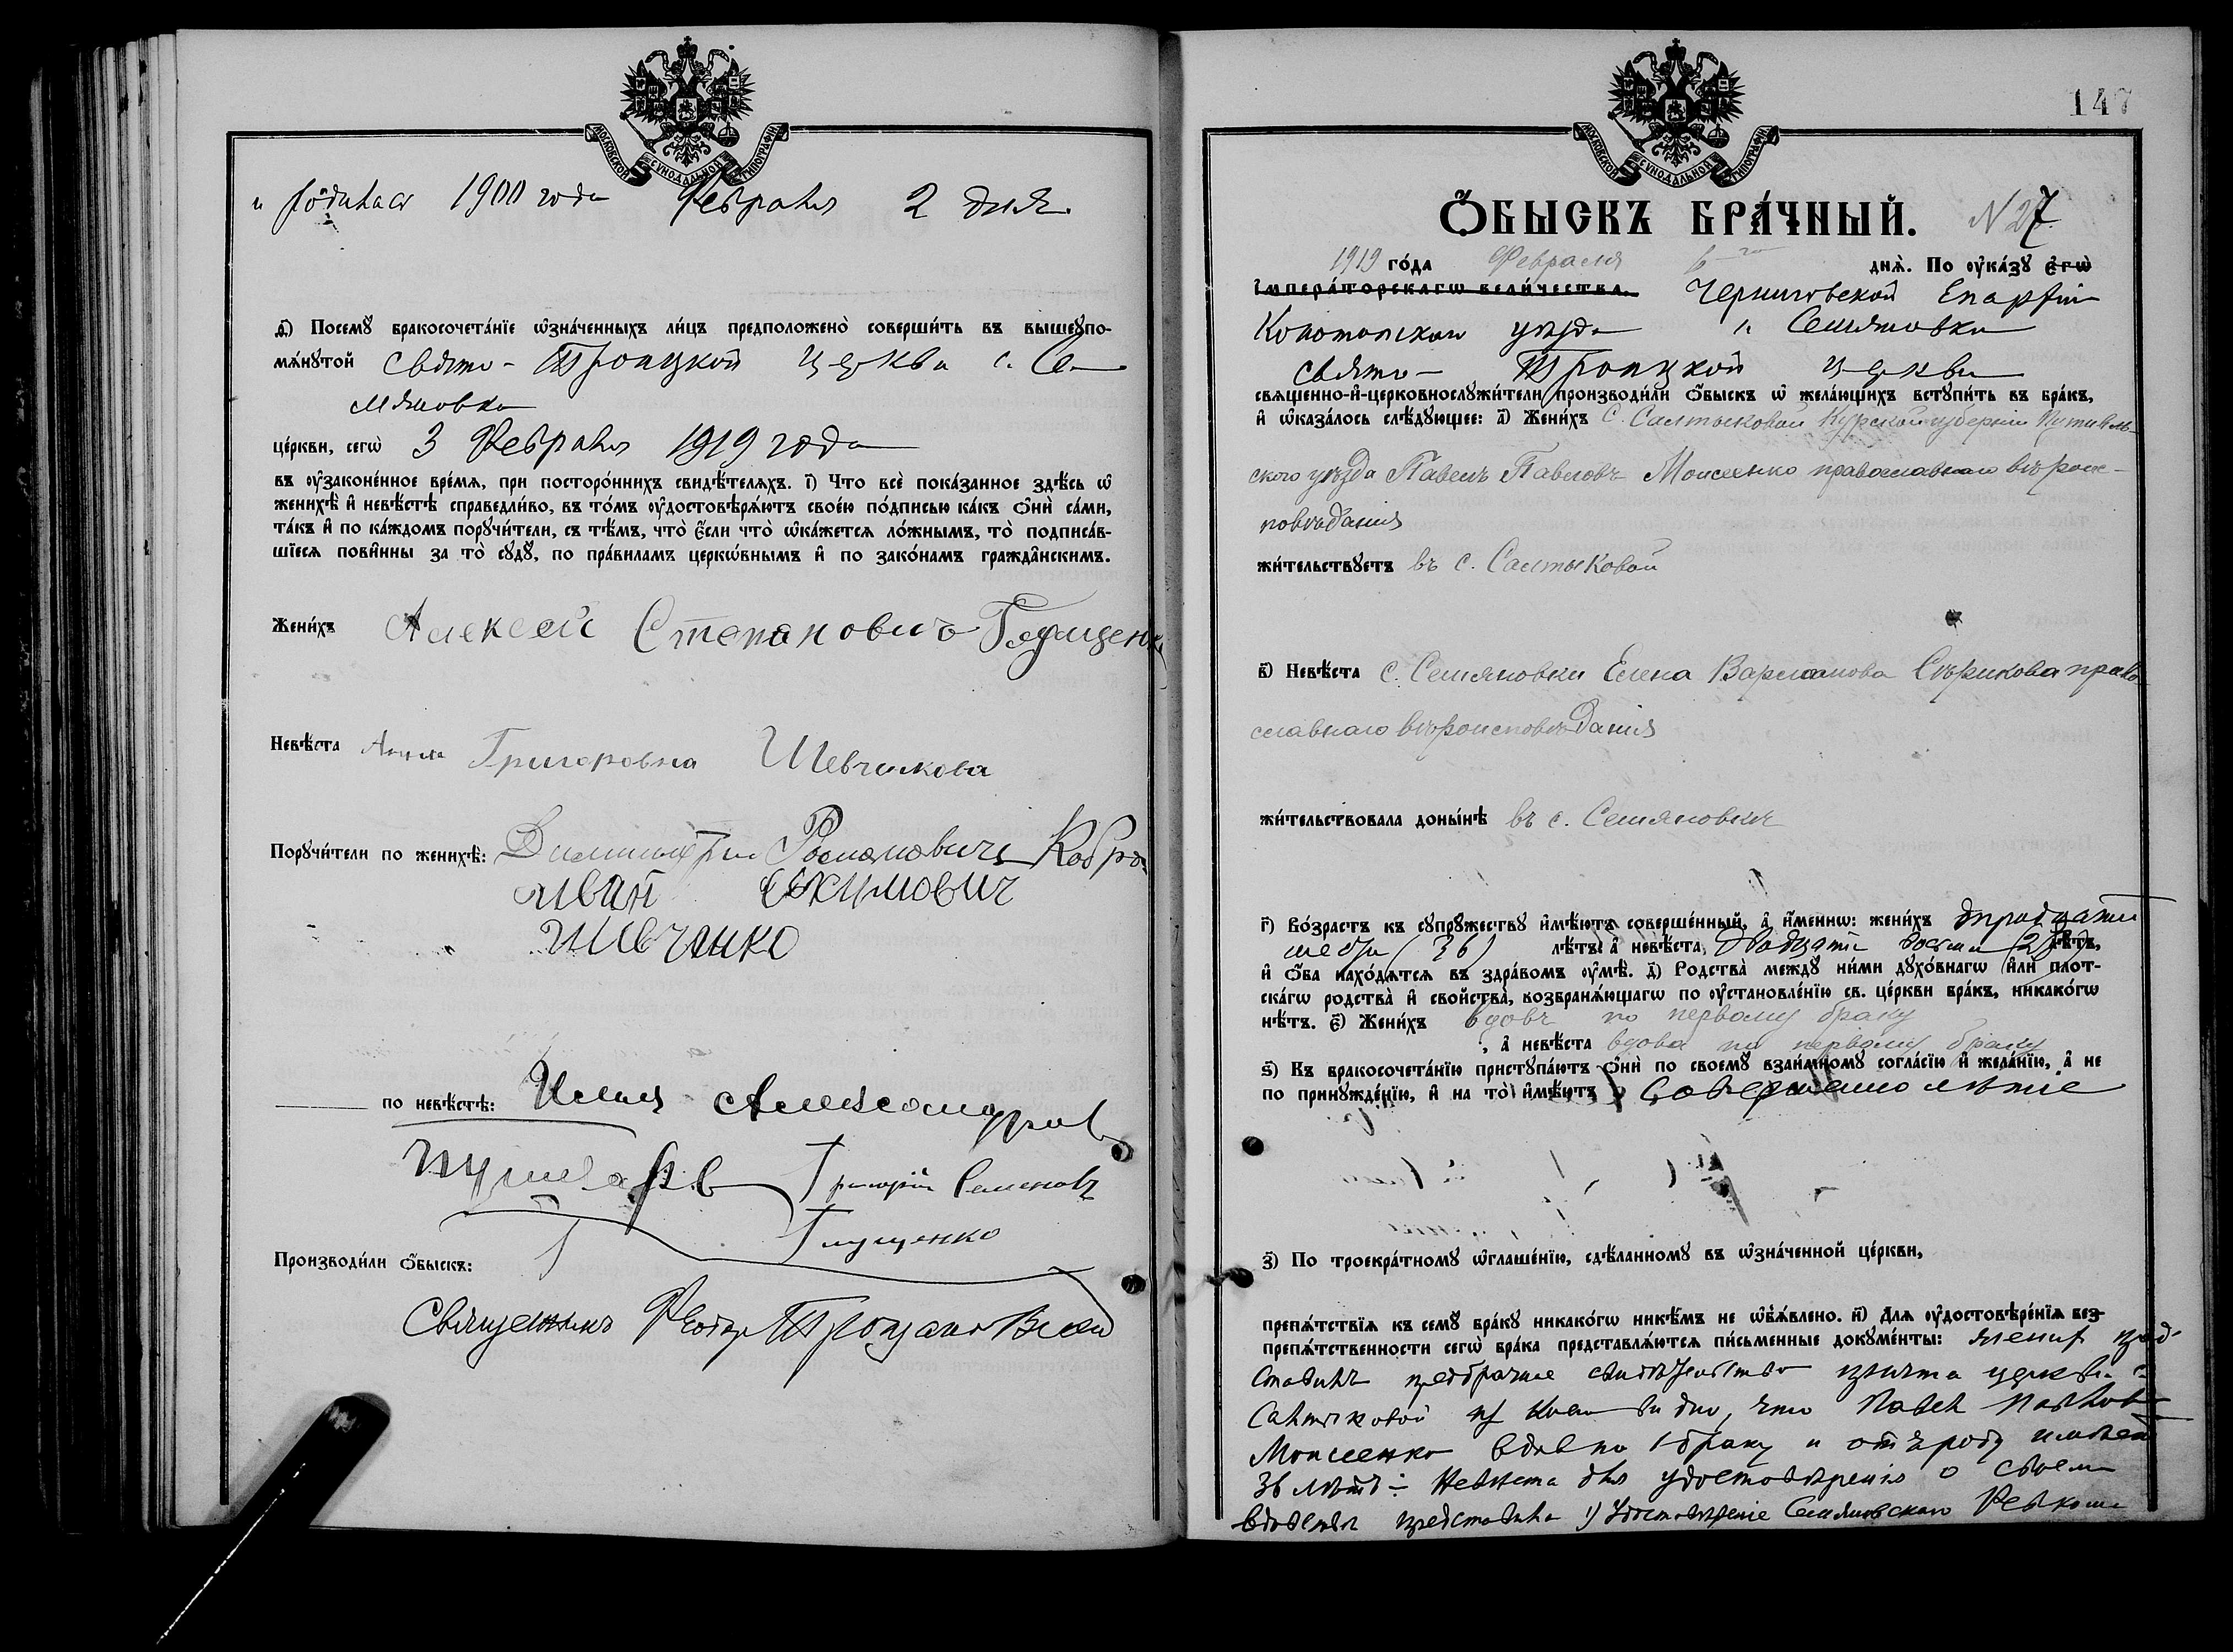 МОСКОВСКОЙ СУНОДАЛЬНОЙ ТИПОГРАФІИ
и родилась 1900 года Февраля 2 дня.
д҃) Посемꙋ бракосочета́нїе ѡ҆зна́ченныхъ ли́цъ предположено̀ соверши́ть въ вышеꙋпо-
мѧ́нꙋтой Свято-Троицкой церкви с. Се-
мяновки
це́ркви, сегѡ̀ 3 Февраля 1919 года
въ ᲂу҆зако́ненное вре́мѧ, при посторо́ннихъ свидѣ́телѧхъ. і҃) Что всѐ пока́занное здѣ́сь ѡ҆
женихѣ̀ и҆ невѣ́стѣ справедли́во, въ то́мъ ᲂу҆достовѣрѧ́ютъ свое́ю по́дписью ка́къ ѻ҆нѝ са́ми,
та́къ и҆ по ка́ждомъ порꙋчи́тели, съ тѣ́мъ, что̀ є҆́сли что̀ ѡ҆ка́жетсѧ ло́жнымъ, то̀ подписа́в-
шїесѧ пови́нны за то̀ сꙋдꙋ̀, по пра́виламъ церкѡ́внымъ и҆ по зако́намъ гражда̂нскимъ.
Жени́хъ Алексей Степановичъ Глущенк
Невѣ́ста Анна Григоровна Шевчикова
Порꙋчи́тели по женихѣ̀: Димитрий Романовичъ Кобро
Иван Екимович
Шивченко
по невѣ́стѣ: Илья Александров
Пушкарв Григорій Семеновъ
Глущенко
Производи́ли ѻ҆́быскъ:
Священникъ Феодор Троцановский
147
МОСКОВСКОЙ СУНОДАЛЬНОЙ ТИПОГРАФІИ
Ѻ҆́БЫСКЪ БРА́ЧНЫЙ. N 27.
1919 го́да Февраля 6-го днѧ̀. По ᲂу҆ка́зꙋ є҆гѡ̀
і҆мпера́торскагѡ вели́чества. Черниговской Епархіи
Конотопскаго уѣзда с. Семяновки
Свято-Троицкой церкви
свѧще́нно-и҆-церковнослꙋжи́тели производи́ли ѻ҆́быскъ ѡ҆ жела́ющихъ встꙋпи́ть въ бра́къ,
и҆ ѡ҆каза́лось слѣ́дꙋющее: а҃) Жени́хъ С. Салтыковой Курской губерніи Путивль-
ского уѣзда Павелъ Павловъ Моисеенко православнаго вѣроис-
повѣданія
жи́тельствꙋетъ въ с. Салтыковой
в҃) Невѣ́ста с. Семяновки Елена Варлаамова Сѣрикова право-
славнаго вѣроисповѣданія
жи́тельствовала доны́нѣ въ с. Семяновкѣ
г҃) Во́зрастъ къ сꙋпрꙋ́жествꙋ и҆мѣ́ютъ соверше́нный, а҆ и҆́меннѡ: жени́хъ тридцати
шести (36) лѣ́тъ, а҆ невѣ́ста двадцати восьми (28) лѣ́тъ,
и҆ ѻ҆́ба нахо́дѧтсѧ въ здра́вомъ ᲂу҆мѣ̀. д҃) Родства̀ междꙋ ни́ми дꙋхо́внагѡ и҆лѝ плот-
ска́гѡ родства̀ и҆ свойства̀, возбранѧ́ющагѡ по ᲂу҆становле́нїю св. це́ркви бра́къ, никако́гѡ
нѣ́тъ. є҃) Жени́хъ вдовъ по первому браку
, а҆ невѣ́ста вдова по первому браку
ѕ҃) Къ бракосочета́нїю пристꙋпа́ютъ ѻ҆нѝ по своемꙋ̀ взаи́мномꙋ согла́сїю и҆ жела́нїю, а҆ не
по принꙋжде́нїю, и҆ на то̀ и҆мѣ́ютъ совершеннолѣтіе
з҃) По троекра́тномꙋ ѡ҆глаше́нїю, сдѣ́ланномꙋ въ ѡ҆зна́ченной це́ркви,
препѧ́тствїѧ къ семꙋ̀ бра́кꙋ никако́гѡ никѣ́мъ не ѡ҆б̾ѧ́влено. и҃) Длѧ ᲂу҆достовѣре́нїѧ без-
препѧ́тственности сегѡ̀ бра́ка представлѧ́ютсѧ пи́сьменные докꙋме́нты: жених пред-
ставилъ предбрачное свидѣтельство причта церкви с.
Салтыковой из коего видно, что Павел Павлов
Моисеенко вдов по 1 браку и отъ роду имѣет
36 лѣтъ. Невѣста для удостовѣренія о своем
вдовствѣ представила 1) Удостовѣреніе Семяновскаго Ревкома